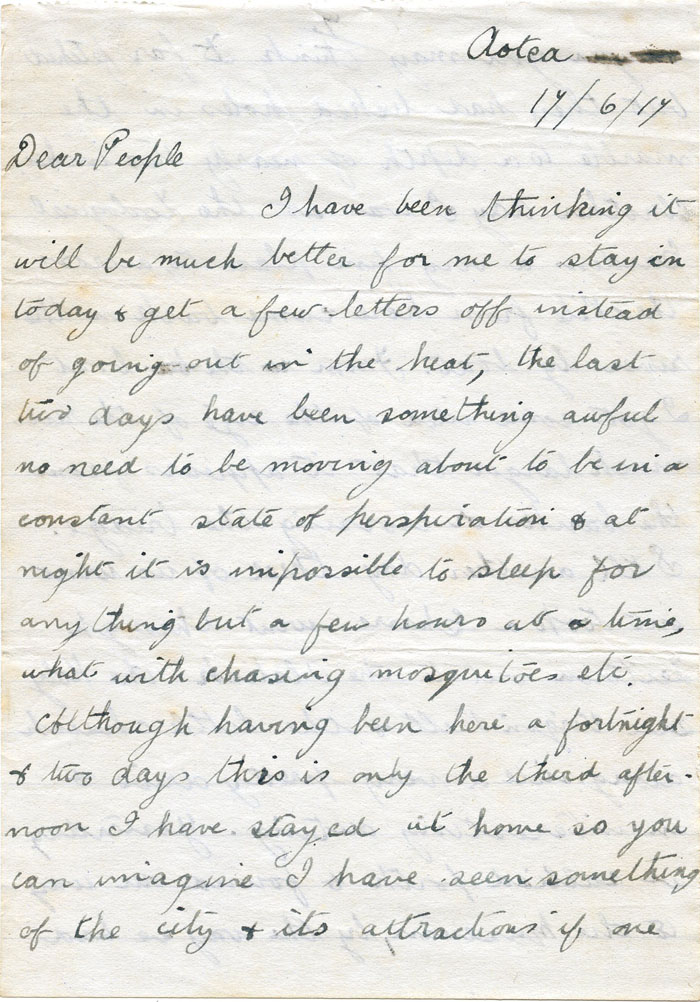 Aotea
17/6/17
Dear People
I have been thinking it
will be much better for me to stay in
today & get a few letters off instead
of going out in the heat, the last
two days have been something awful
no need to be moving about to be in a
constant state of perspiration & at
night it is impossible to sleep for
anything but a few hours at a time,
what with chasing mosquitoes etc.
Although having been here a fortnight
& two days this is only the third after-
noon I have stayed at home so you
can imagine I have seen something
of the city & its attractions if one